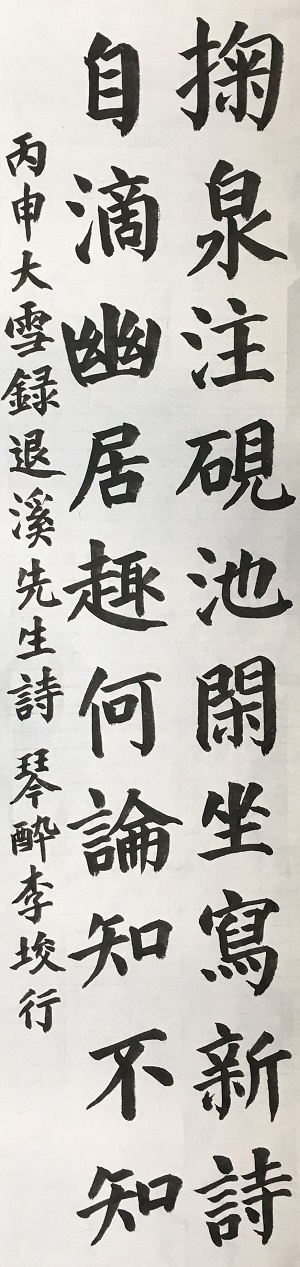 掬泉注硯池閑坐寫新詩
自滴幽居趣何論知不知
丙申大雪録退溪先生詩 琴酔李埈行